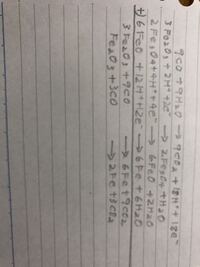 9CO + 9H₂O → 9CO₂ + 18H⁺ + 18e⁻
3Fe₂O₃ + 2H⁺ + 2e⁻ → 2Fe₃O₄ + H₂O
2Fe₃O₄ + 4H⁺ + 4e⁻ → 6FeO + 2H₂O
+) 6FeO + 12H⁺ + 12e⁻ → 6Fe + 6H₂O
3Fe₂O₃ + 9CO → 6Fe + 9CO₂
Fe₂O₃ + 3CO → 2Fe + 3CO₂